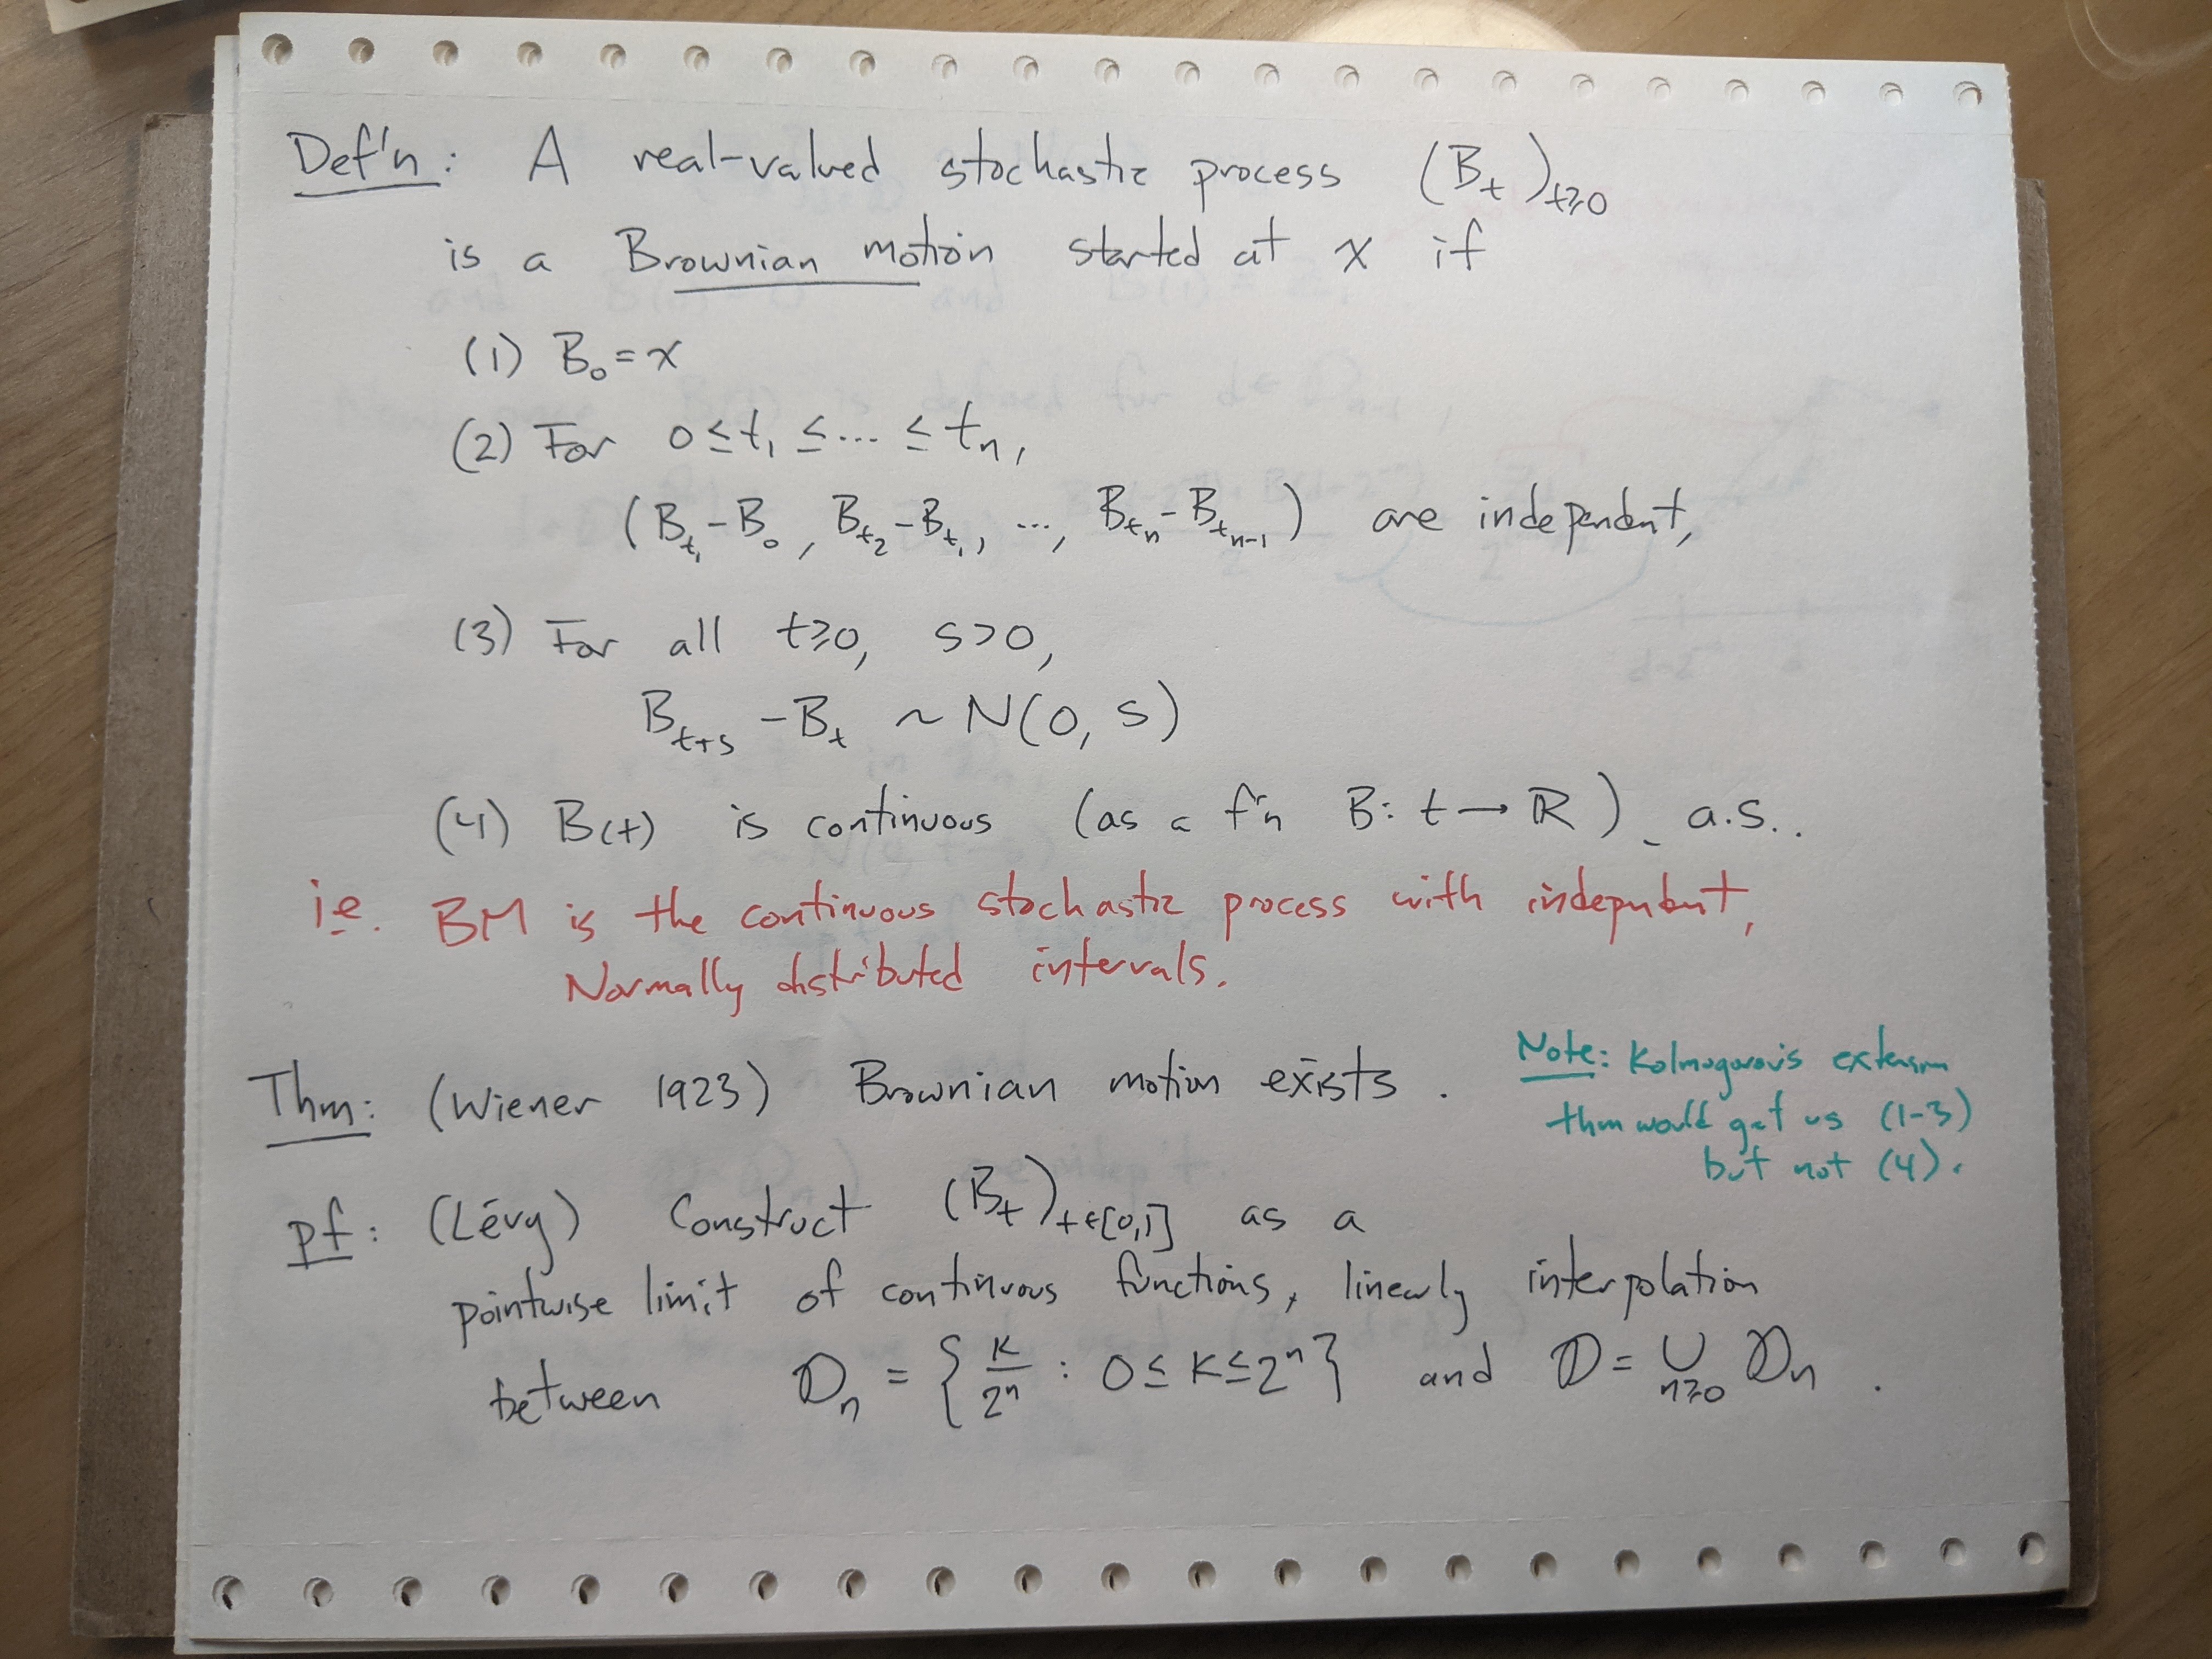 Def'n: A real-valued stochastic process (B_t)_{t≥0}
is a Brownian motion started at x if
(1) B_0 = x
(2) For 0 ≤ t_1 ≤ ... ≤ t_n,
(B_{t_1} - B_0, B_{t_2} - B_{t_1}, ..., B_{t_n} - B_{t_{n-1}}) are independent,
(3) For all t≥0, s>0,
B_{t+s} - B_t ~ N(0, s)
(4) B(t) is continuous (as a f'n B: t → ℝ) a.s..
i.e. BM is the continuous stochastic process with independent,
Normally distributed intervals.
Thm: (Wiener 1923) Brownian motion exists.
Note: Kolmogorov's extension
thm would get us (1-3)
but not (4).
pf: (Lévy) Construct (B_t)_{t∈[0,1]} as a
pointwise limit of continuous functions, linearly interpolation
between 𝔻_n = {k/2^n : 0 ≤ k ≤ 2^n} and 𝔻 = ∪_{n≥0} 𝔻_n.